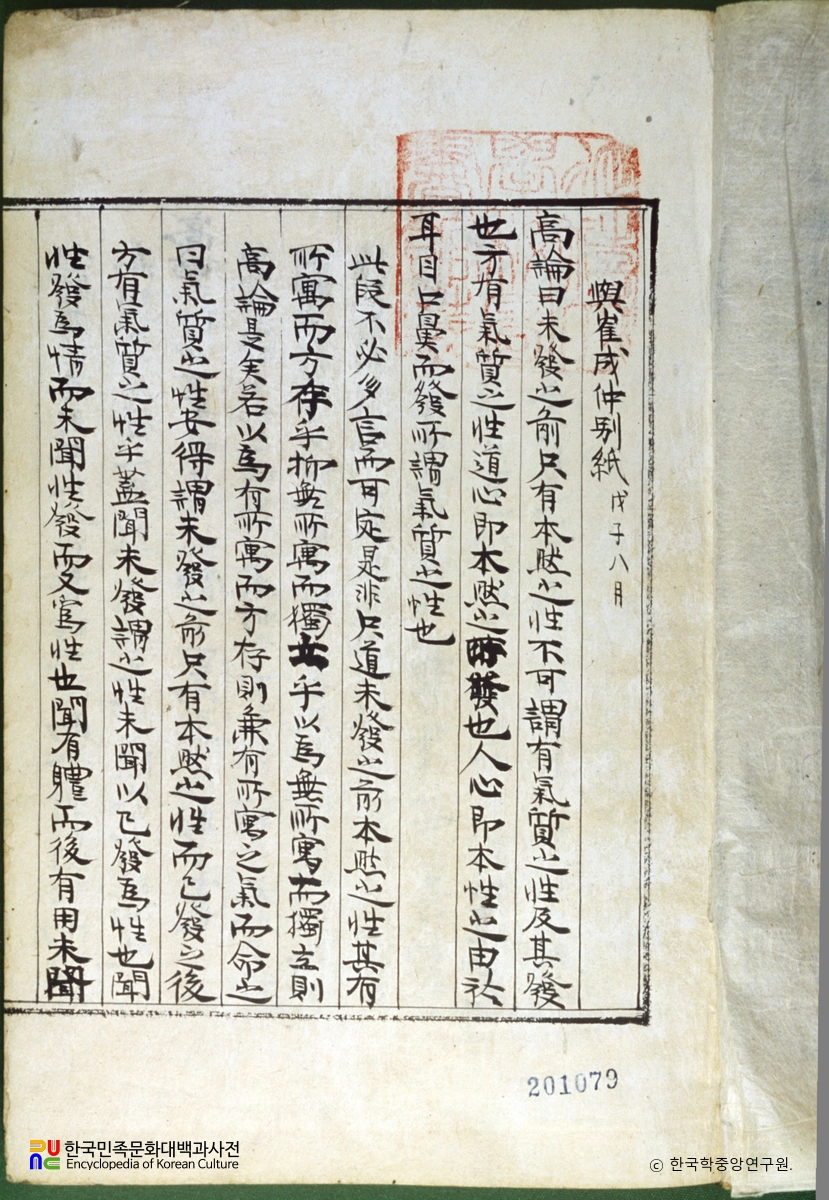 與崔成仲別紙 戊子八月
高論曰未發之前只有本然之性不可謂有氣質之性及其發
也方有氣質之性道心即本然之發也人心即本性之由於
耳目口鼻而發所謂氣質之性也
此段不必多言而可定是非只道未發之前本然之性其有
所寓而方存乎抑無所寓而獨立乎以爲無所寓而獨立則
高論是矣若以爲有所寓而方存則兼有所寓之氣而命之
曰氣質之性安得謂未發之前只有本然之性而已發之後
方有氣質之性乎蓋聞未發謂之性未聞以已發爲性也聞
性發爲情而未聞性發而又爲性也聞有體而後有用未聞
201079
한국민족문화대백과사전
Encyclopedia of Korean Culture
© 한국학중앙연구원.